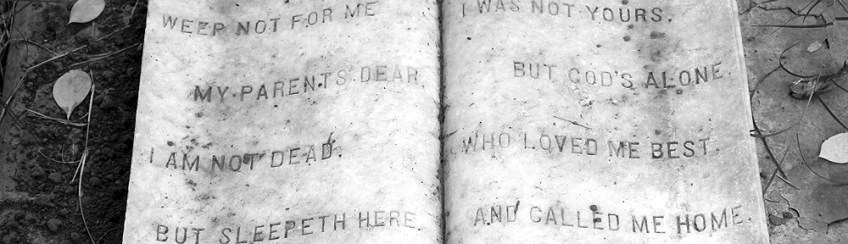 WEEP NOT FOR ME
MY PARENTS DEAR,
I AM NOT DEAD.
BUT SLEEPETH HERE.
I WAS NOT YOURS.
BUT GOD'S ALONE.
WHO LOVED ME BEST.
AND CALLED ME HOME.